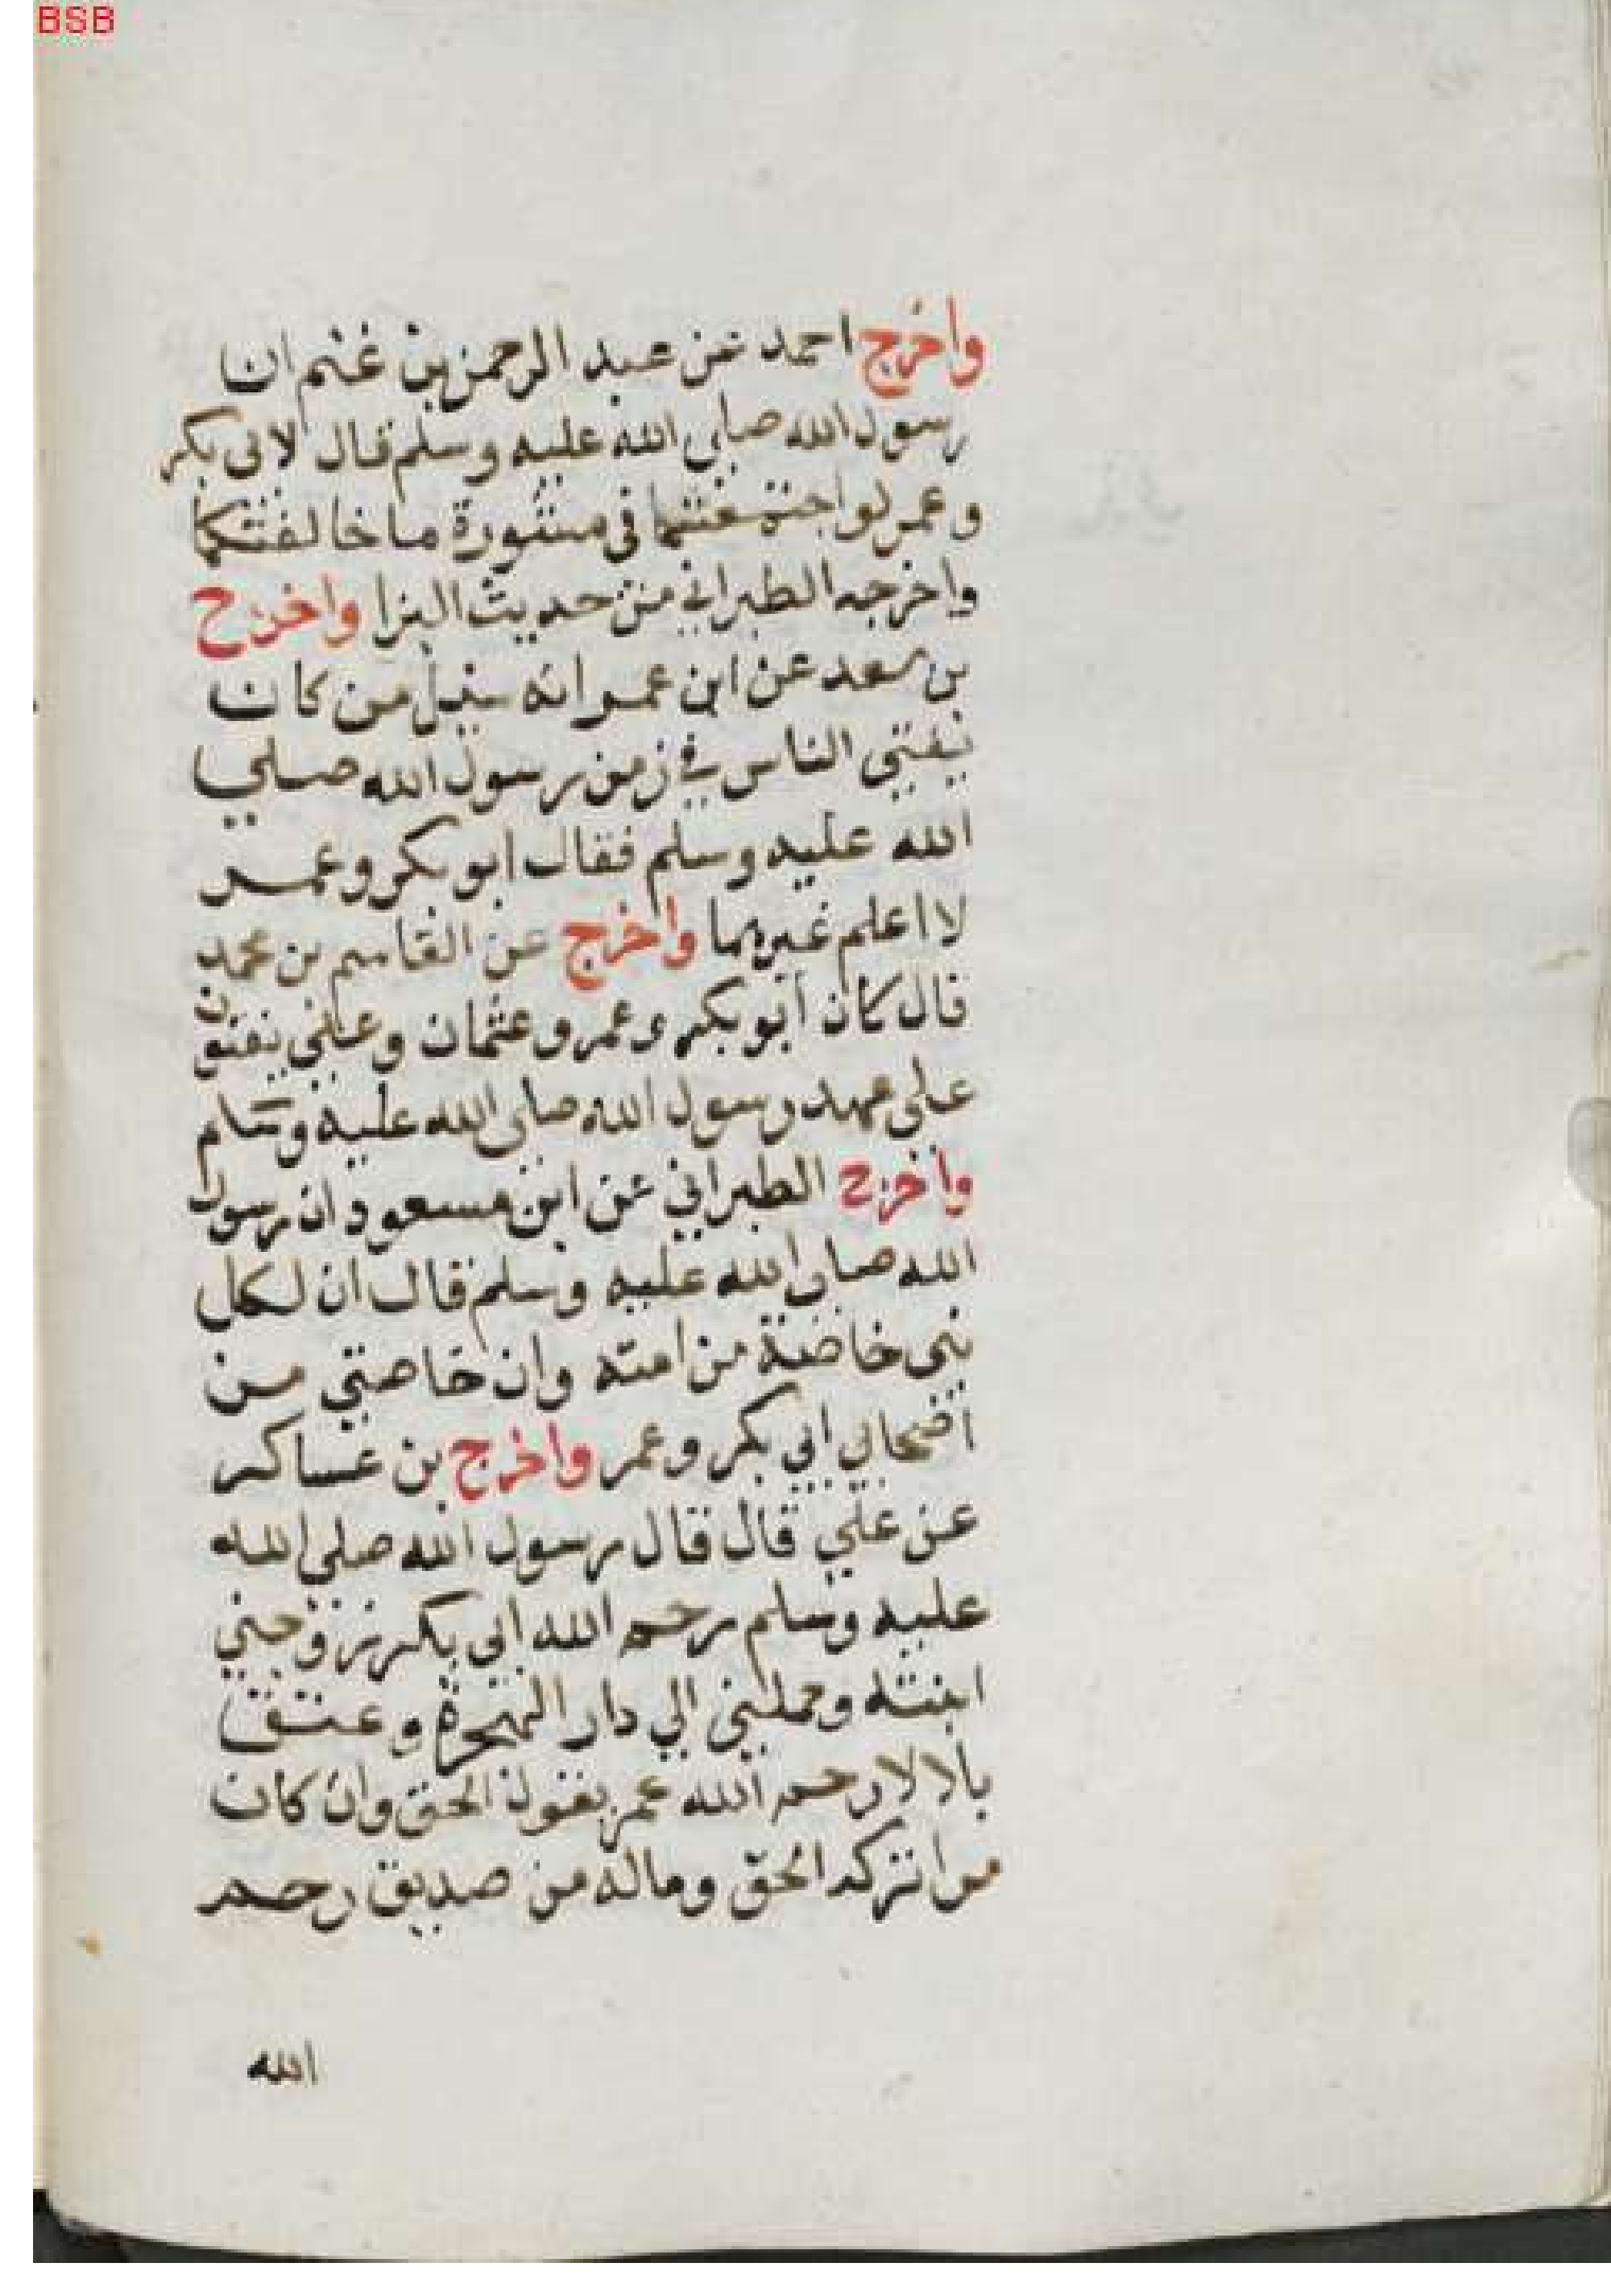 BSB
واخرج احمد عن عبد الرحمن بن غنم ان
رسول الله صلي الله عليه وسلم قال لابى بكر
وعمر لو اجتمعتما فى مشورة ما خالفتكما
واخرجه الطبراني من حديث البرا واخرج
بن سعد عن ابن عمر انه سئيل من كان
يفتي الناس في زمن رسول الله صلي
الله عليه وسلم فقال ابو بكر وعمر
لا اعلم غيرهما واخرج عن القاسم بن محمد
قال كان ابو بكر وعمر وعثمان وعلي يفتون
على عهد رسول الله صلى الله عليه وسلم
واخرج الطبراني عن ابن مسعود ان رسول
الله صلى الله عليه وسلم قال ان لكل
نبى خاصة من امته وان خاصتي من
اصحابي ابي بكر وعمر واخرج بن عساكر
عن علي قال قال رسول الله صلى الله
عليه وسلم رحم الله ابى بكر زوجني
ابنته وحملني الي دار الهجرة وعتق
بلالا رحم الله عمر يقول الحق وان كان
مرا تركه الحق وماله من صديق رحم
الله